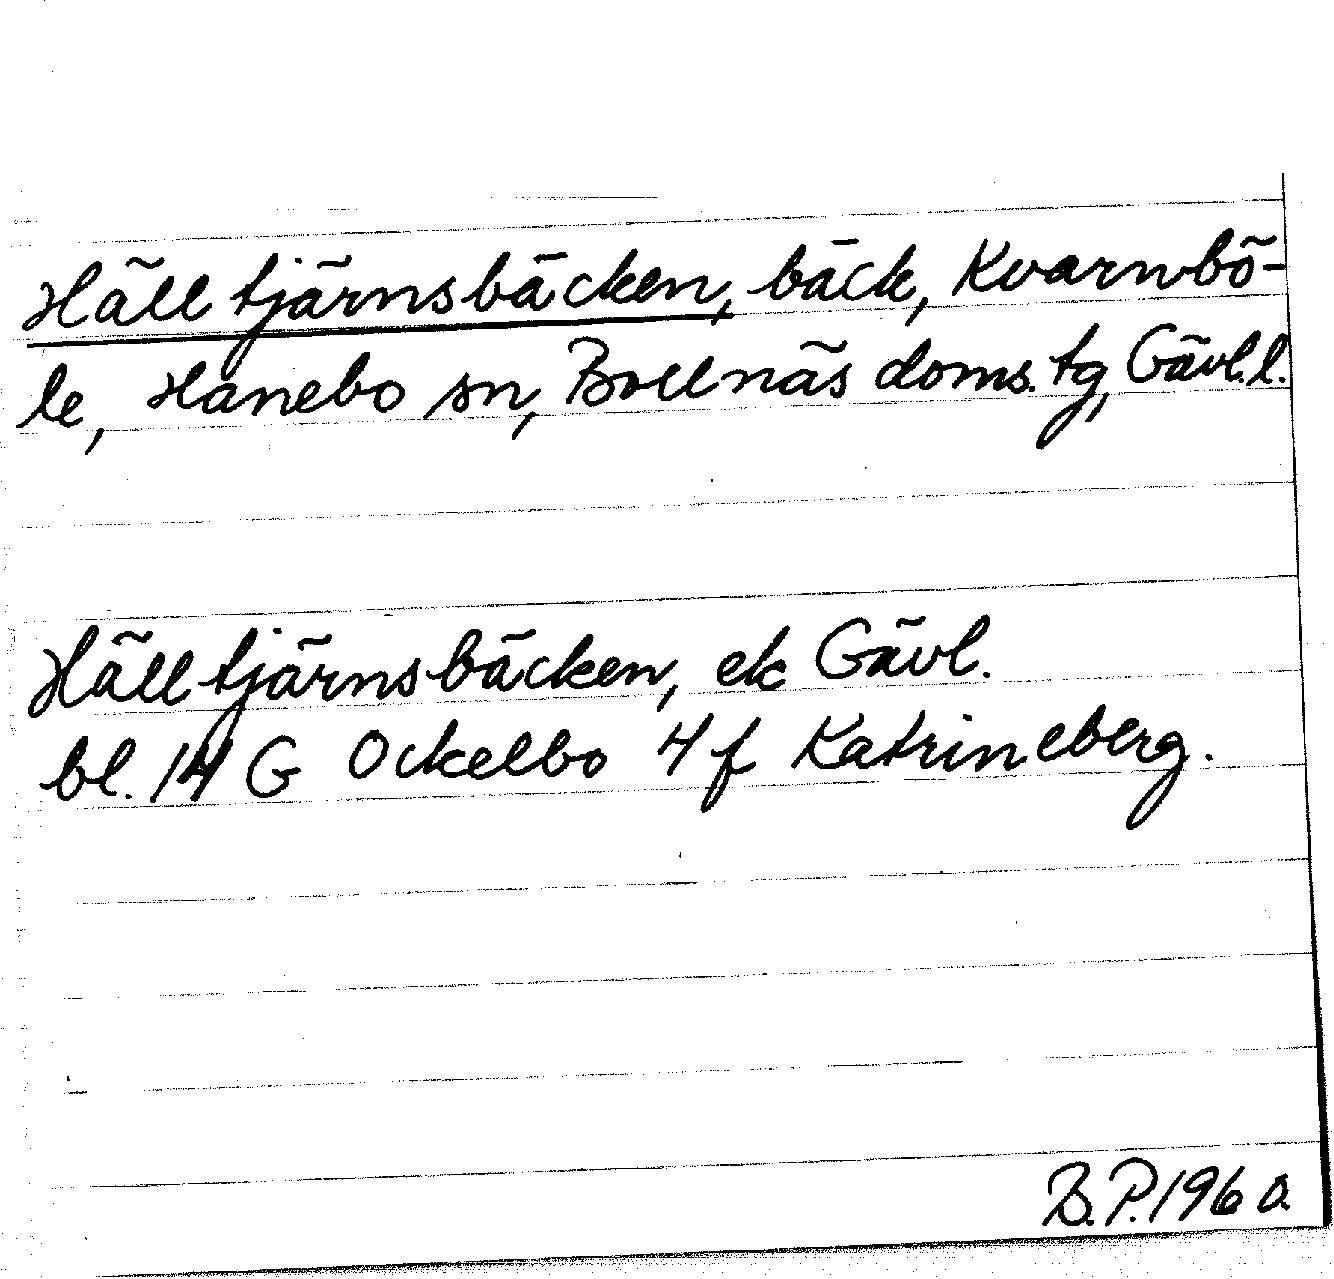 Hälltjärnsbäcken, bäck, Kvarnbö-
le, Hanebo sn, Bollnäs doms. tg, Gävl.l.
Hälltjärnsbäcken, ek Gävl.
bl. 14 G Ockelbo 4 f Katrineberg.
B.P. 1960.